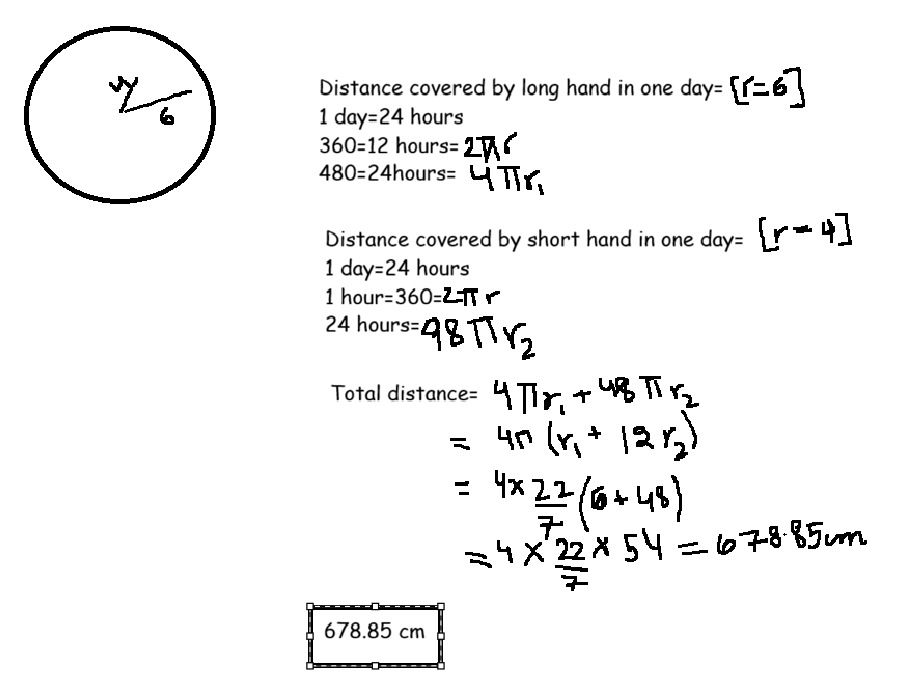 4
6
Distance covered by long hand in one day= [r=6]
1 day=24 hours
360=12 hours= 2πr
480=24hours= 4πr₁
Distance covered by short hand in one day= [r=4]
1 day=24 hours
1 hour=360=2πr
24 hours=98πr₂
Total distance= 4πr₁+48πr₂
= 4π(r₁+12r₂)
= 4×22/7(6+48)
=4×22/7×54=678.85cm
678.85 cm